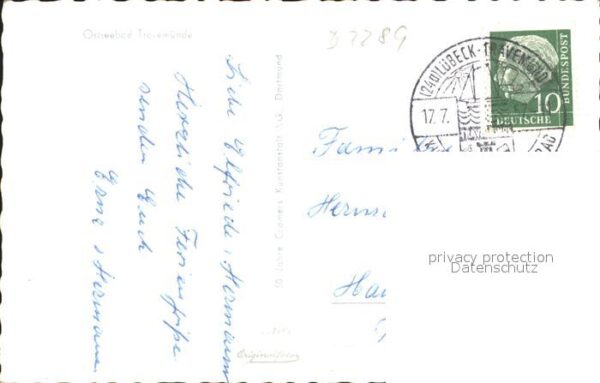 Ostseebad Travemünde
D 2289
(24a) LÜBECK-TRAVEMÜNDE
17. 7.
DEUTSCHE
BUNDESPOST
10
Liebe Elfriede, Hermann
Herzliche Feriengrüße
senden Euch
Erna + Hermann
50 Jahre Cramers Kunstanstalt KG. Dortmund
Originalfoto
Fami
Herm
Ha
privacy protection
Datenschutz